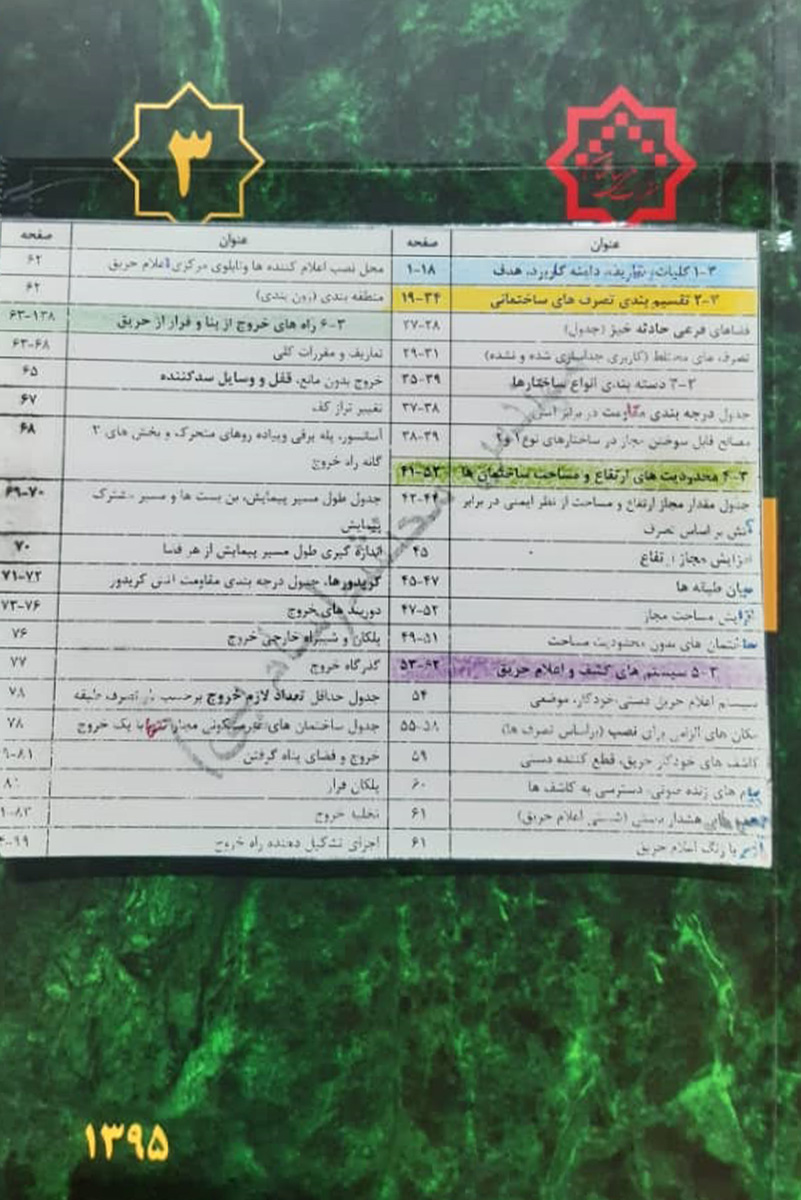 ۳
عنوان صفحه
۳-۱ کلیات، تعاریف، دامنه کاربرد، هدف ۱-۱۸
۳-۲ تقسیم بندی تصرف های ساختمانی ۱۹-۳۴
فضاهای فرعی حادثه خیز (جدول) ۲۷-۲۸
تصرف های مختلط (کاربری جداسازی شده و نشده) ۲۹-۳۱
۳-۳ دسته بندی انواع ساختارها ۳۵-۳۹
جدول درجه بندی مقاومت در برابر آتش ۳۷-۳۸
مصالح قابل سوختن مجاز در ساختارهای نوع ۱ و ۲ ۳۸-۳۹
۳-۴ محدودیت های ارتفاع و مساحت ساختمان ها ۴۱-۵۲
جدول مقدار مجاز ارتفاع و مساحت از نظر ایمنی در برابر ۴۲-۴۴
آتش بر اساس تصرف
افزایش مجاز ارتفاع ۴۵
میان طبقه ها ۴۵-۴۷
افزایش مساحت مجاز ۴۷-۵۲
ساختمان های بدون محدودیت مساحت ۴۹-۵۱
۳-۵ سیستم های کشف و اعلام حریق ۵۳-۶۲
سیستم اعلام حریق دستی، خودکار، موضعی ۵۴
مکان های الزامی برای نصب (براساس تصرف ها) ۵۵-۵۸
کاشف های خودکار حریق، قطع کننده دستی ۵۹
پیام های زنده صوتی، دسترسی به کاشف ها ۶۰
هشدار دستی (شستی اعلام حریق) ۶۱
یا زنگ اعلام حریق ۶۱
عنوان صفحه
محل نصب اعلام کننده ها وتابلوی مرکزی اعلام حریق ۶۲
منطقه بندی (زون بندی) ۶۲
۳-۶ راه های خروج از بنا و فرار از حریق ۶۳-۱۳۸
تعاریف و مقررات کلی ۶۳-۶۸
خروج بدون مانع، قفل و وسایل سدکننده ۶۵
تغییر تراز کف ۶۷
آسانسور، پله برقی وپیاده روهای متحرک و بخش های ۳ ۶۸
گانه راه خروج
جدول طول مسیر پیمایش، بن بست ها و مسیر مشترک ۶۹-۷۰
پیمایش
اندازه گیری طول مسیر پیمایش از هر فضا ۷۰
کریدورها، جدول درجه بندی مقاومت آتش کریدور ۷۱-۷۲
دوربند های خروج ۷۳-۷۶
پلکان و شیبراه خارجی خروج ۷۶
گذرگاه خروج ۷۷
جدول حداقل تعداد لازم خروج برحسب بار تصرف طبقه ۷۸
جدول ساختمان های غیرمسکونی مجاز تنها با یک خروج ۷۸
خروج و فضای پناه گرفتن
پلکان فرار
تخلیه خروج
اجزای تشکیل دهنده راه خروج
۱۳۹۵